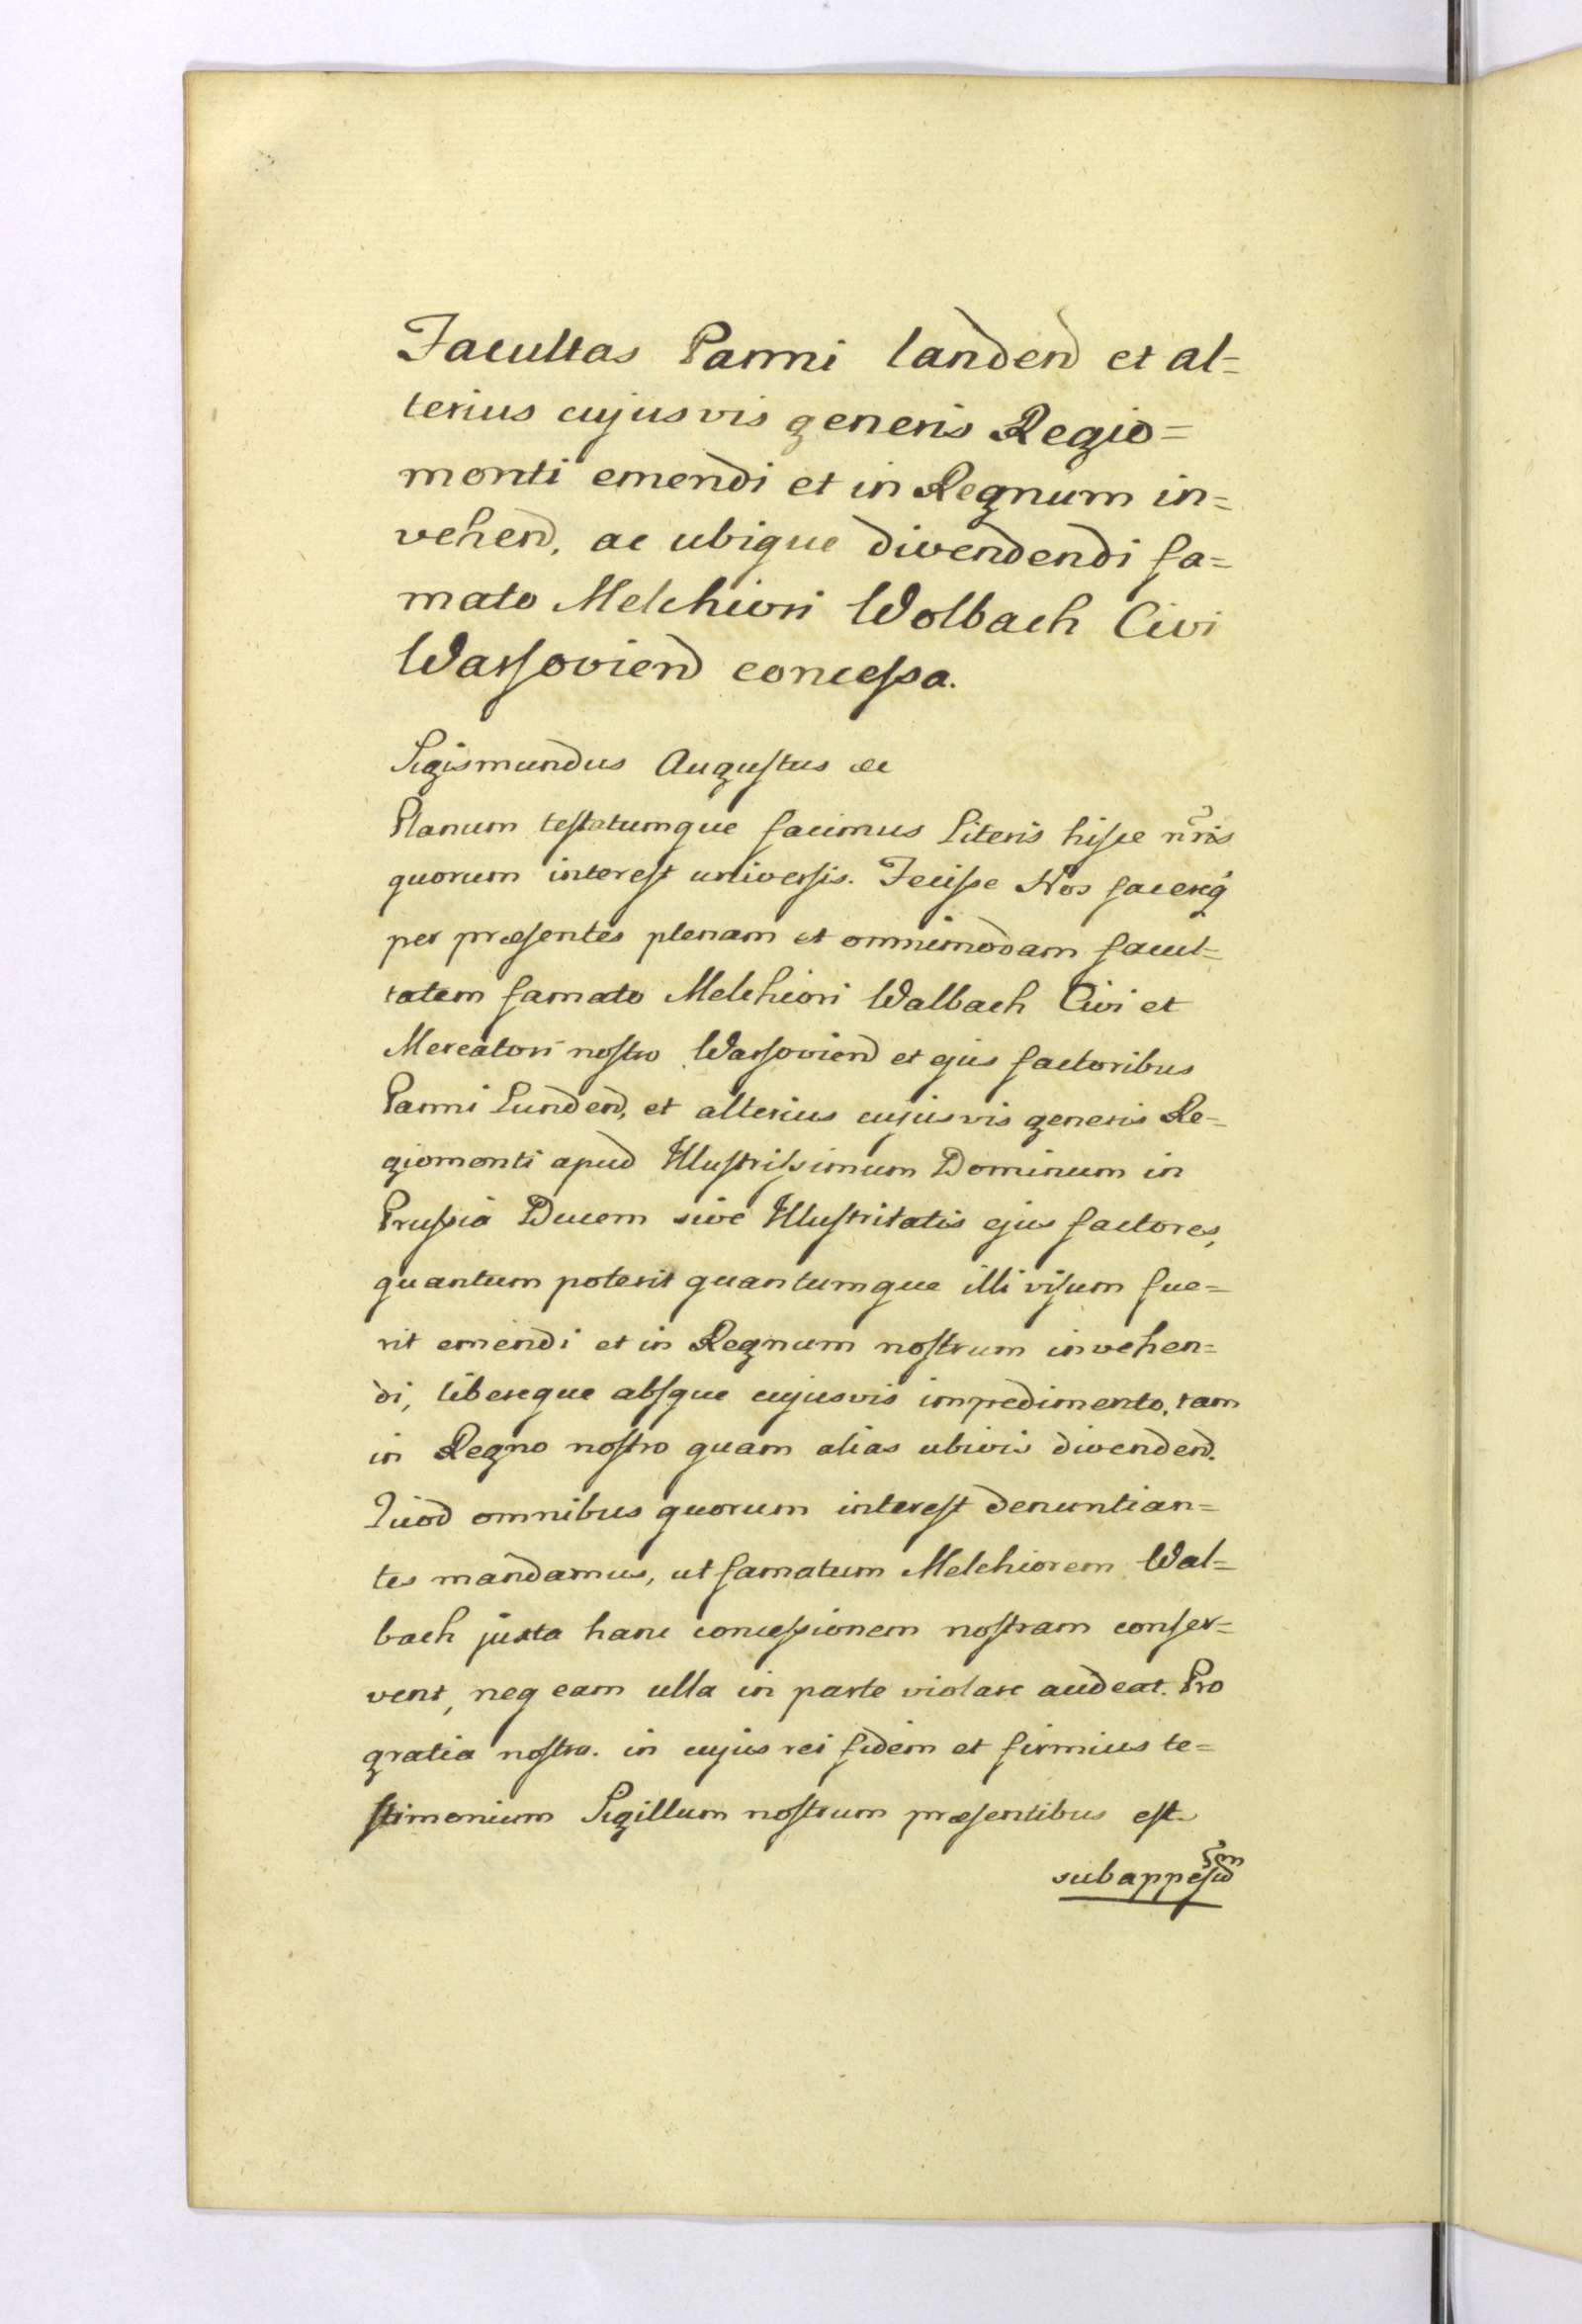 Facultas Panni landen et al=
terius cujusvis generis Regio=
monti emendi et in Regnum in=
vehen, ac ubique divendendi fa=
mato Melchiori Wolbach Civi
Warsovien concessa.
Sigismundus Augustus &c
Planum testatumque facimus Literis hisce nris
quorum interest universis. Fecisse Nos facereq
per præsentes plenam et omnimodam facul=
tatem famato Melchiori Walbach Civi et
Mercatori nostro Warsovien et ejus factoribus
Panni Lunden, et alterius cujusvis generis Re=
giomonti apud Illustrissimum Dominum in
Prussia Ducem sive Illustritatis ejus factores,
quantum poterit quantumque illi visum fue=
rit emendi et in Regnum nostrum invehen=
di, libereque absque cujusvis impedimento, tam
in Regno nostro quam alias ubivis divenden.
Quod omnibus quorum interest denuntian=
tes mandamus, ut famatum Melchiorem Wal=
bach juxta hanc concessionem nostram conser=
vent, neq eam ulla in parte violare audeat. Pro
gratia nostra. in cujus rei fidem et firmius te=
stimonium Sigillum nostrum præsentibus est